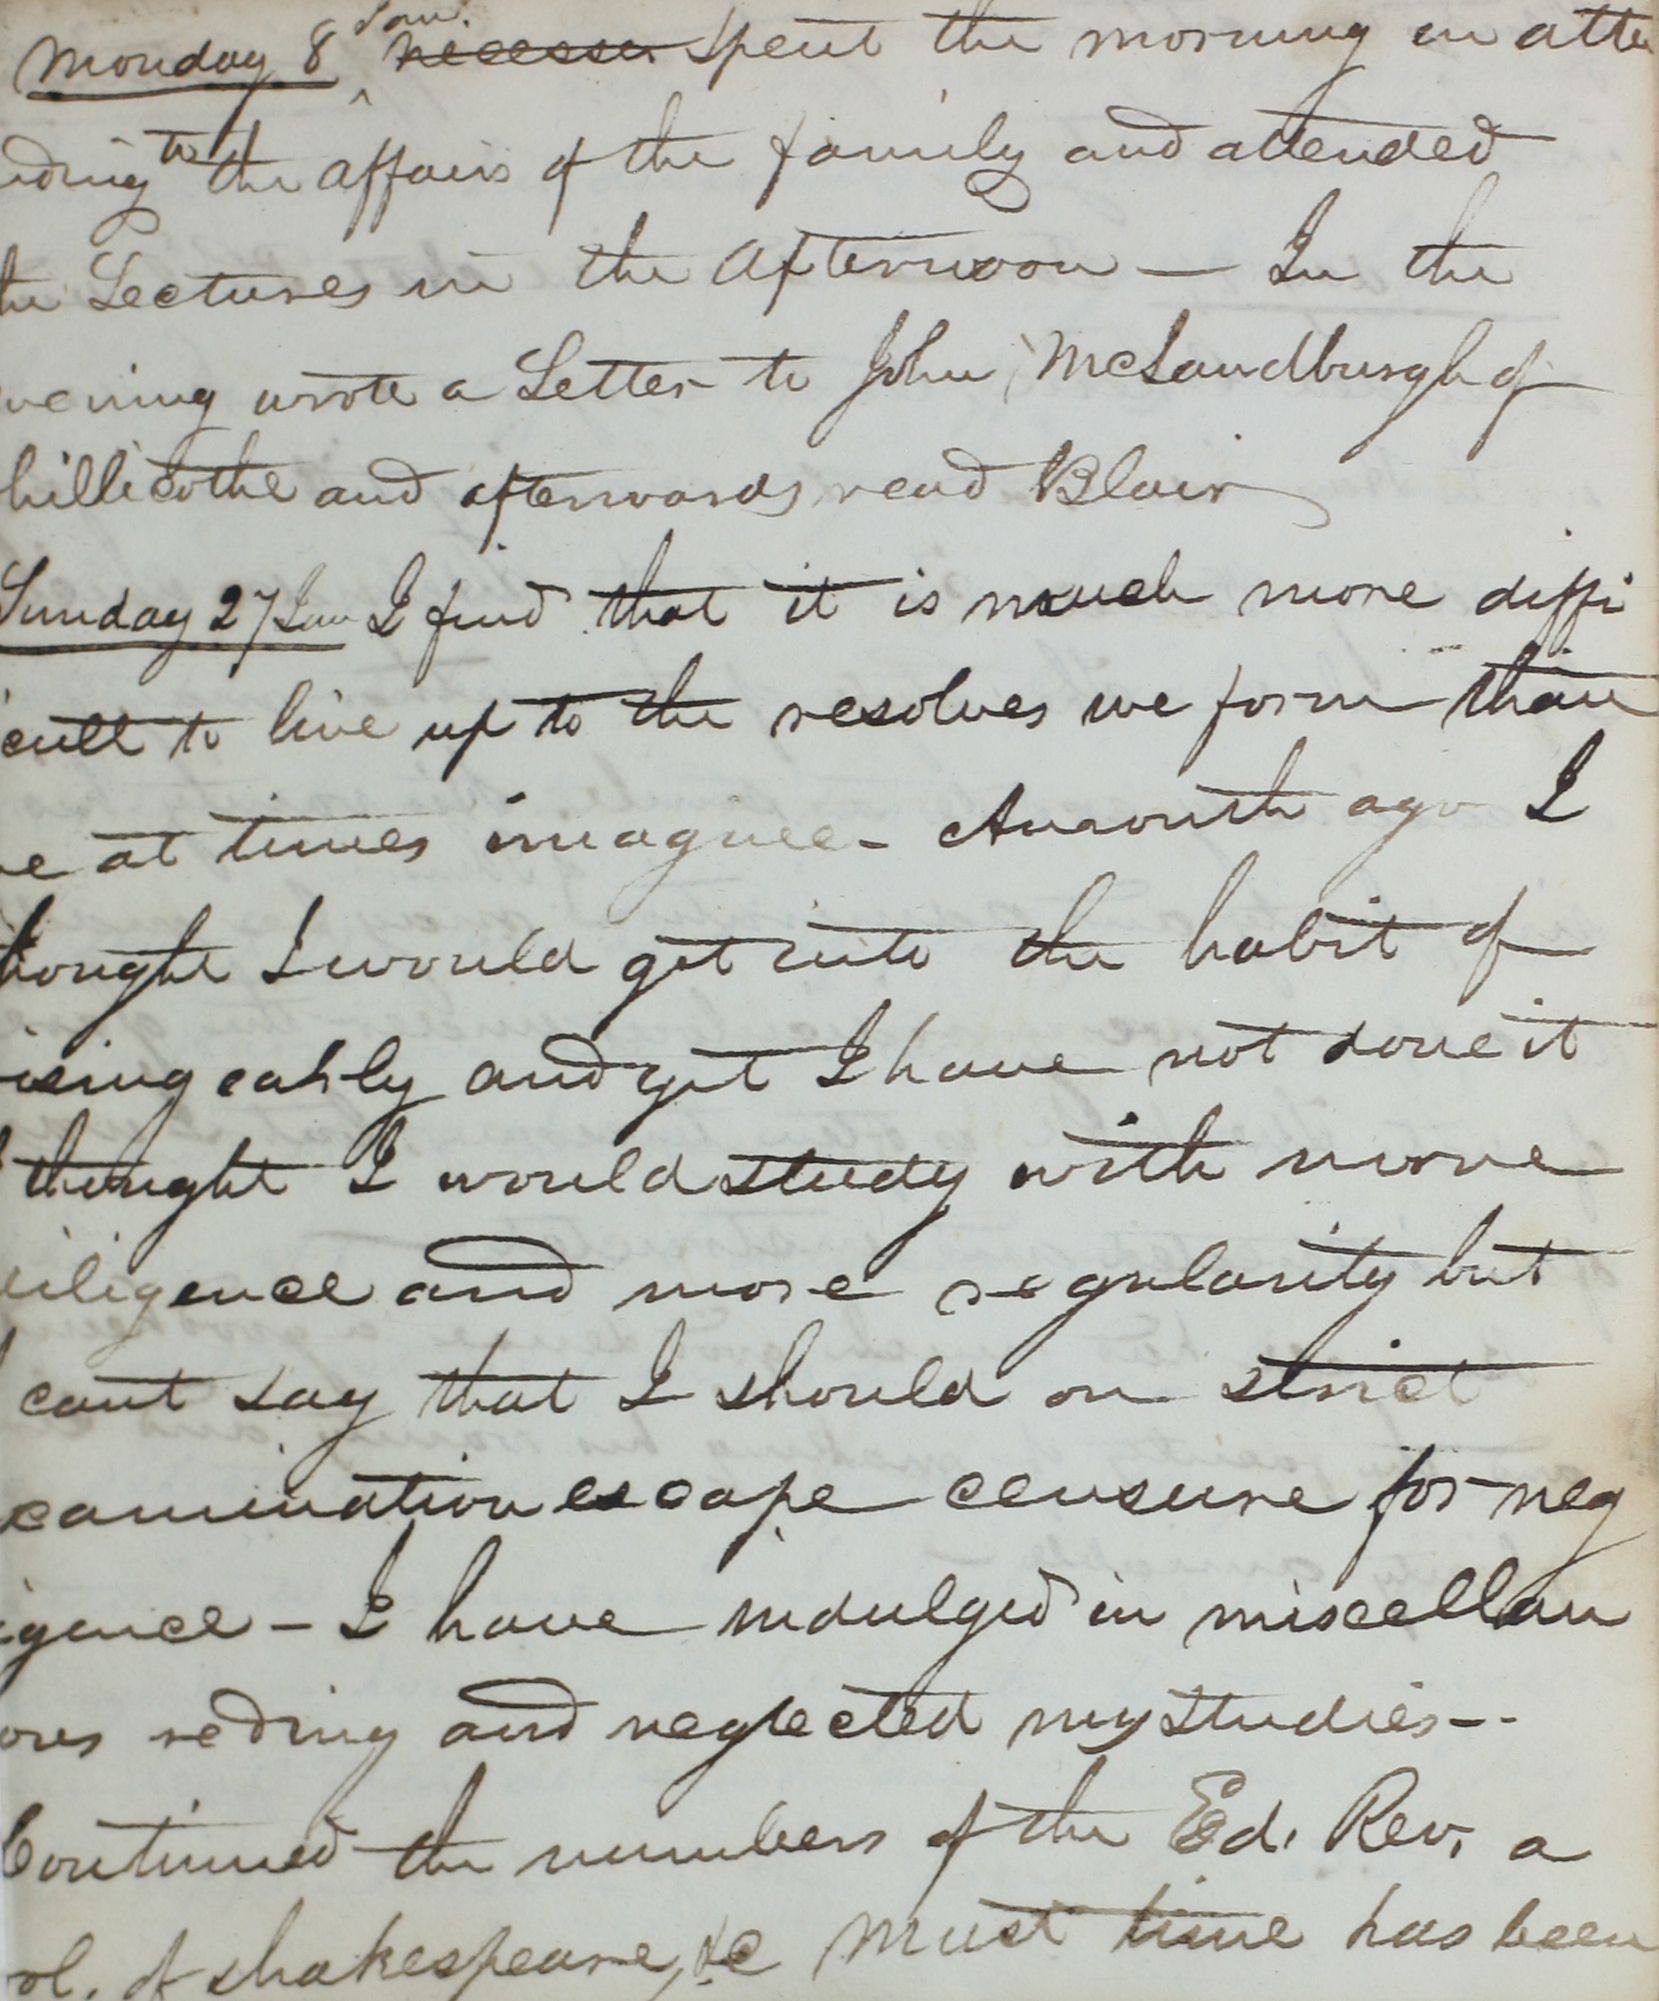 Monday 8 ^Jan. necessa spent the morning in atte
nding ^to the affairs of the family and attended
the Lectures in the Afternoon — In the
vening wrote a Letter to John McLandburgh of
hillicothe and afterwards read Blair
Sunday 27 Jan I find that it is much more diffi
cult to live up to the resolves we form than
we at times imagine - A month ago I
hought I would get into the habit of
ising eahly and yet I have not done it
I thought I would study with more
diligence and more regularity but
I cant say that I should on strict
examination escape censure for neg
igence – I have indulged in miscellan
ous reding and neglected my studies--
Continued the numbers of the Ed. Rev. a
ol. of Shakespeare, &c Must time has been